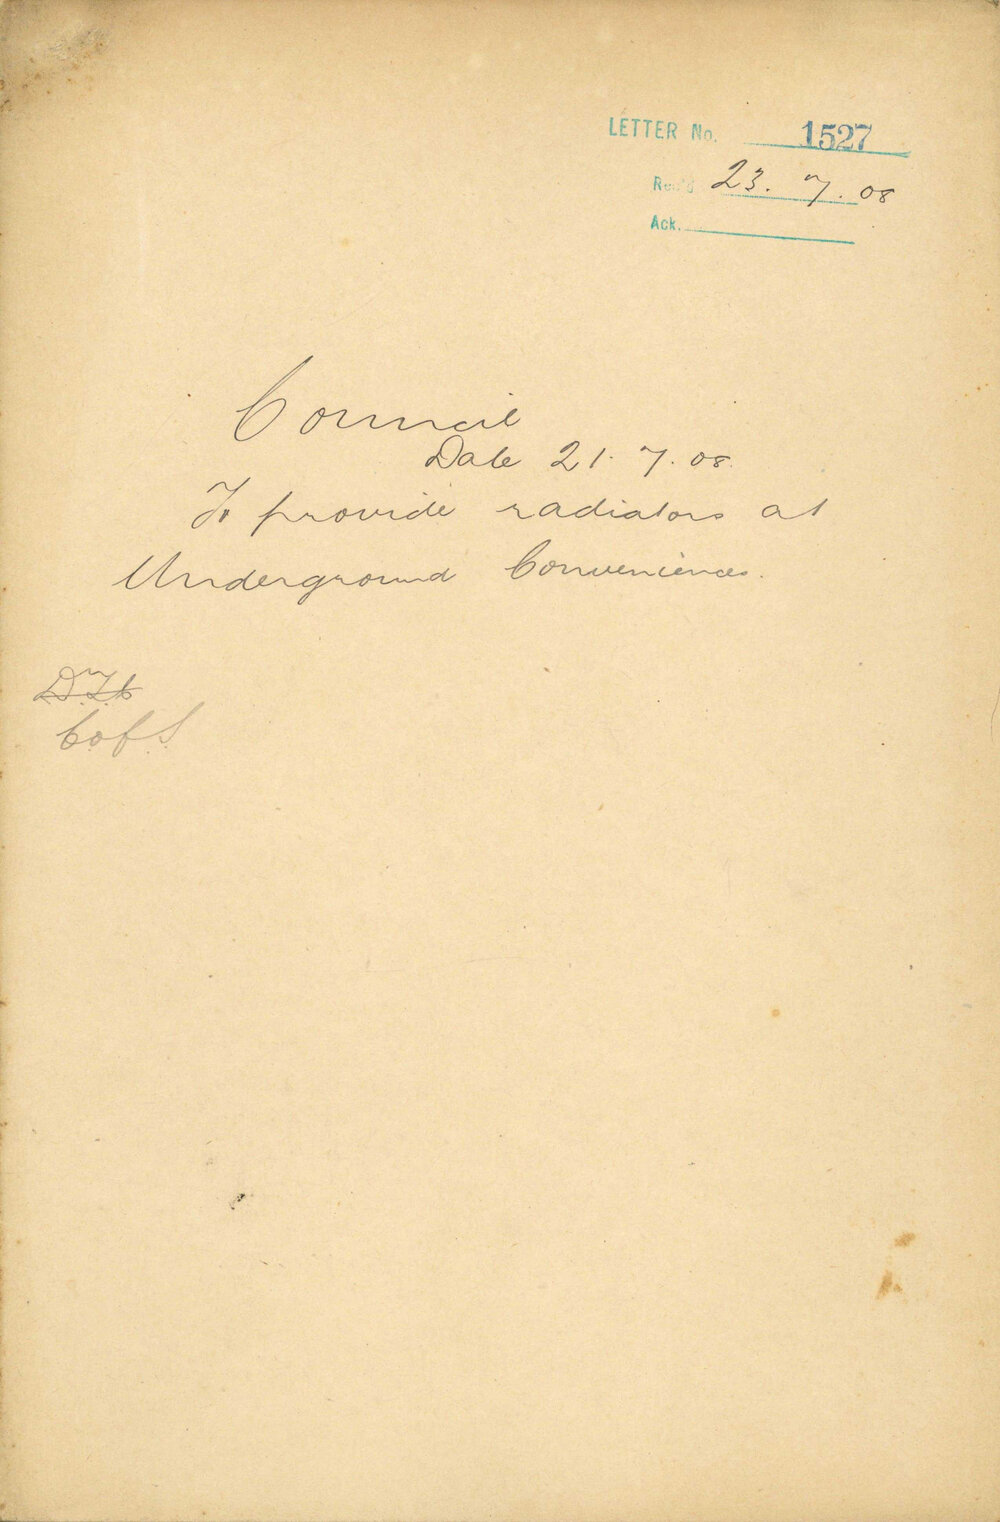 LETTER No. 1527
Rec'd 23. 7. 08
Ack.
Council
Date 21. 7. 08.
To provide radiators at
Underground Conveniences.
C of S